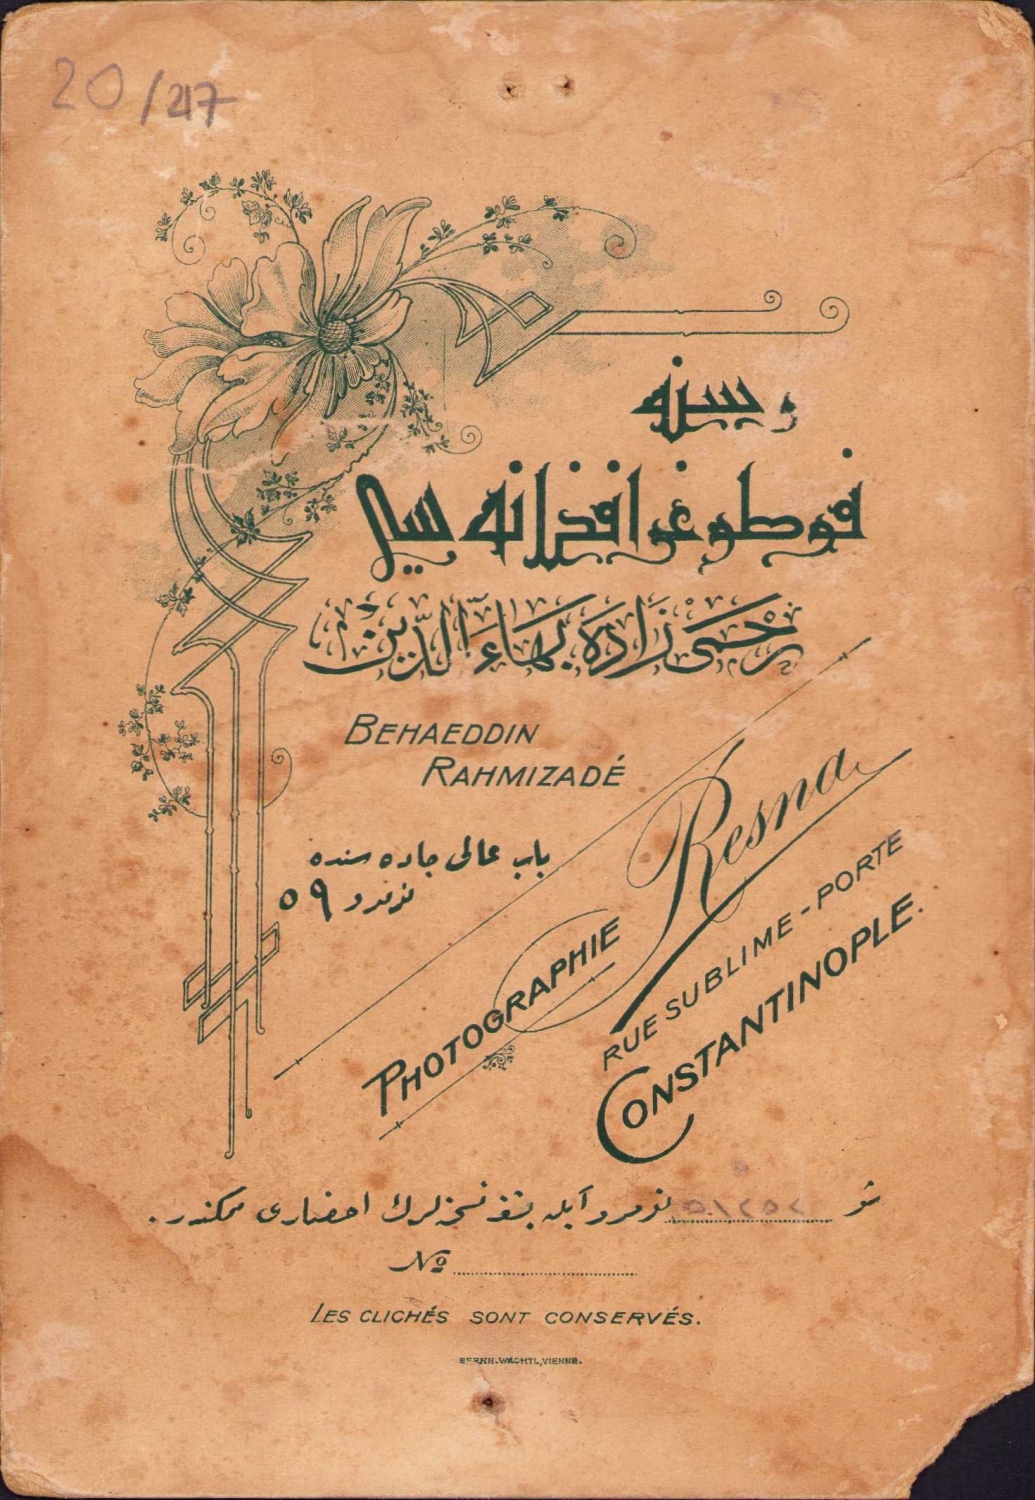 20/217
رسنه
فوطوغرافخانه سی
رحمی زاده بهاءالدین
BEHAEDDIN
RAHMIZADÉ
باب عالی جاده سنده
نومرو ٥٩
PHOTOGRAPHIE Resna
RUE SUBLIME-PORTE
CONSTANTINOPLE.
شو نومرو ایله بشقه نسخه لرك احضاری ممکندر.
№
LES CLICHÉS SONT CONSERVÉS.
BERNH. WACHTL, VIENNE.